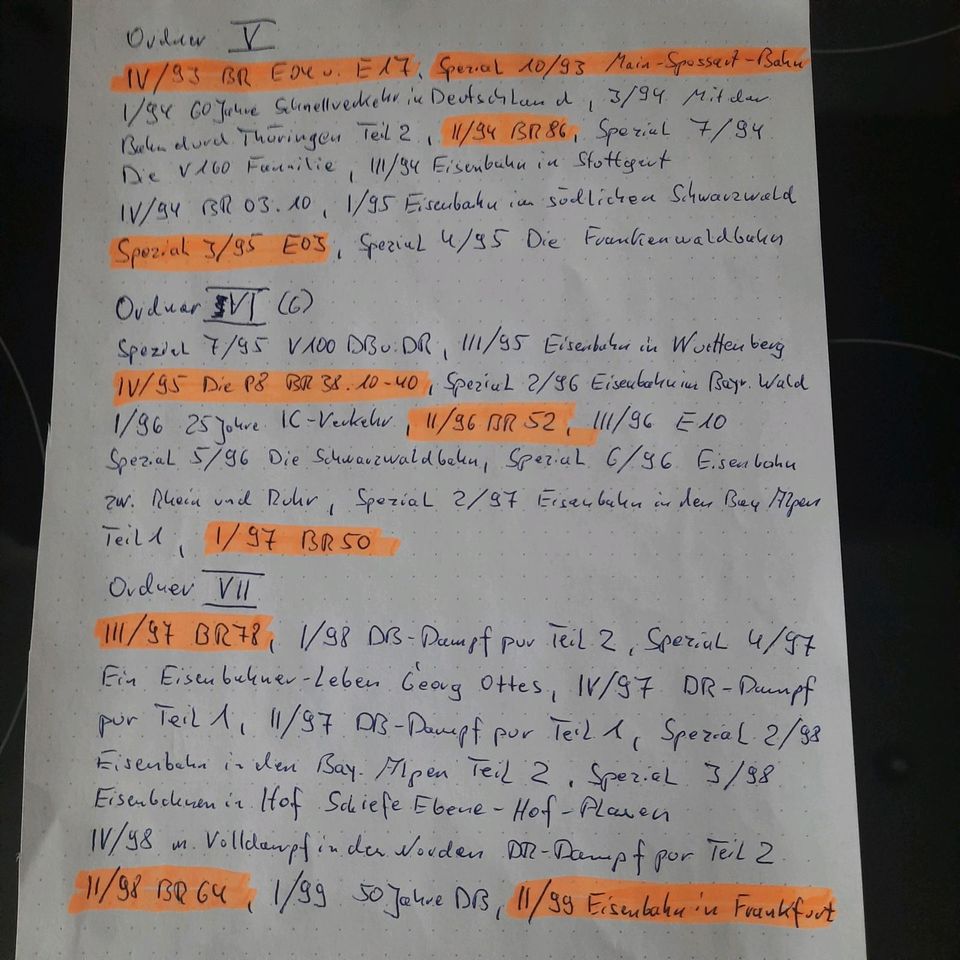 Ordner V
IV/93 BR E04 u. E17, Spezial 10/93 Main-Spessart-Bahn
1/94 60 Jahre Schnellverkehr in Deutschland, 3/94 Mit der
Bahn durch Thüringen Teil 2, II/94 BR 86, Spezial 7/94
Die V160 Familie, III/94 Eisenbahn in Stuttgart
IV/94 BR 03.10, 1/95 Eisenbahn im südlichen Schwarzwald
Spezial 3/95 E03, Spezial 4/95 Die Frankenwaldbahn
Ordner VI (6)
Spezial 7/95 V100 DB u. DR, III/95 Eisenbahn in Württenberg
IV/95 Die P8 BR 38.10-40, Spezial 2/96 Eisenbahn im Bayr. Wald
1/96 25 Jahre IC-Verkehr, II/96 BR 52, III/96 E10
Spezial 5/96 Die Schwarzwaldbahn, Spezial 6/96 Eisenbahn
zw. Rhein und Ruhr, Spezial 2/97 Eisenbahn in den Bay Alpen
Teil 1, 1/97 BR 50
Ordner VII
III/97 BR 78, 1/98 DB-Dampf pur Teil 2, Spezial 4/97
Ein Eisenbahner-Leben Georg Ottes, IV/97 DR-Dampf
pur Teil 1, II/97 DB-Dampf pur Teil 1, Spezial 2/98
Eisenbahn in den Bay. Alpen Teil 2, Spezial 3/98
Eisenbahnen in Hof Schiefe Ebene-Hof-Plauen
IV/98 m. Volldampf in den Norden DR-Dampf pur Teil 2
II/98 BR 64, 1/99 50 Jahre DB, II/99 Eisenbahn in Frankfurt